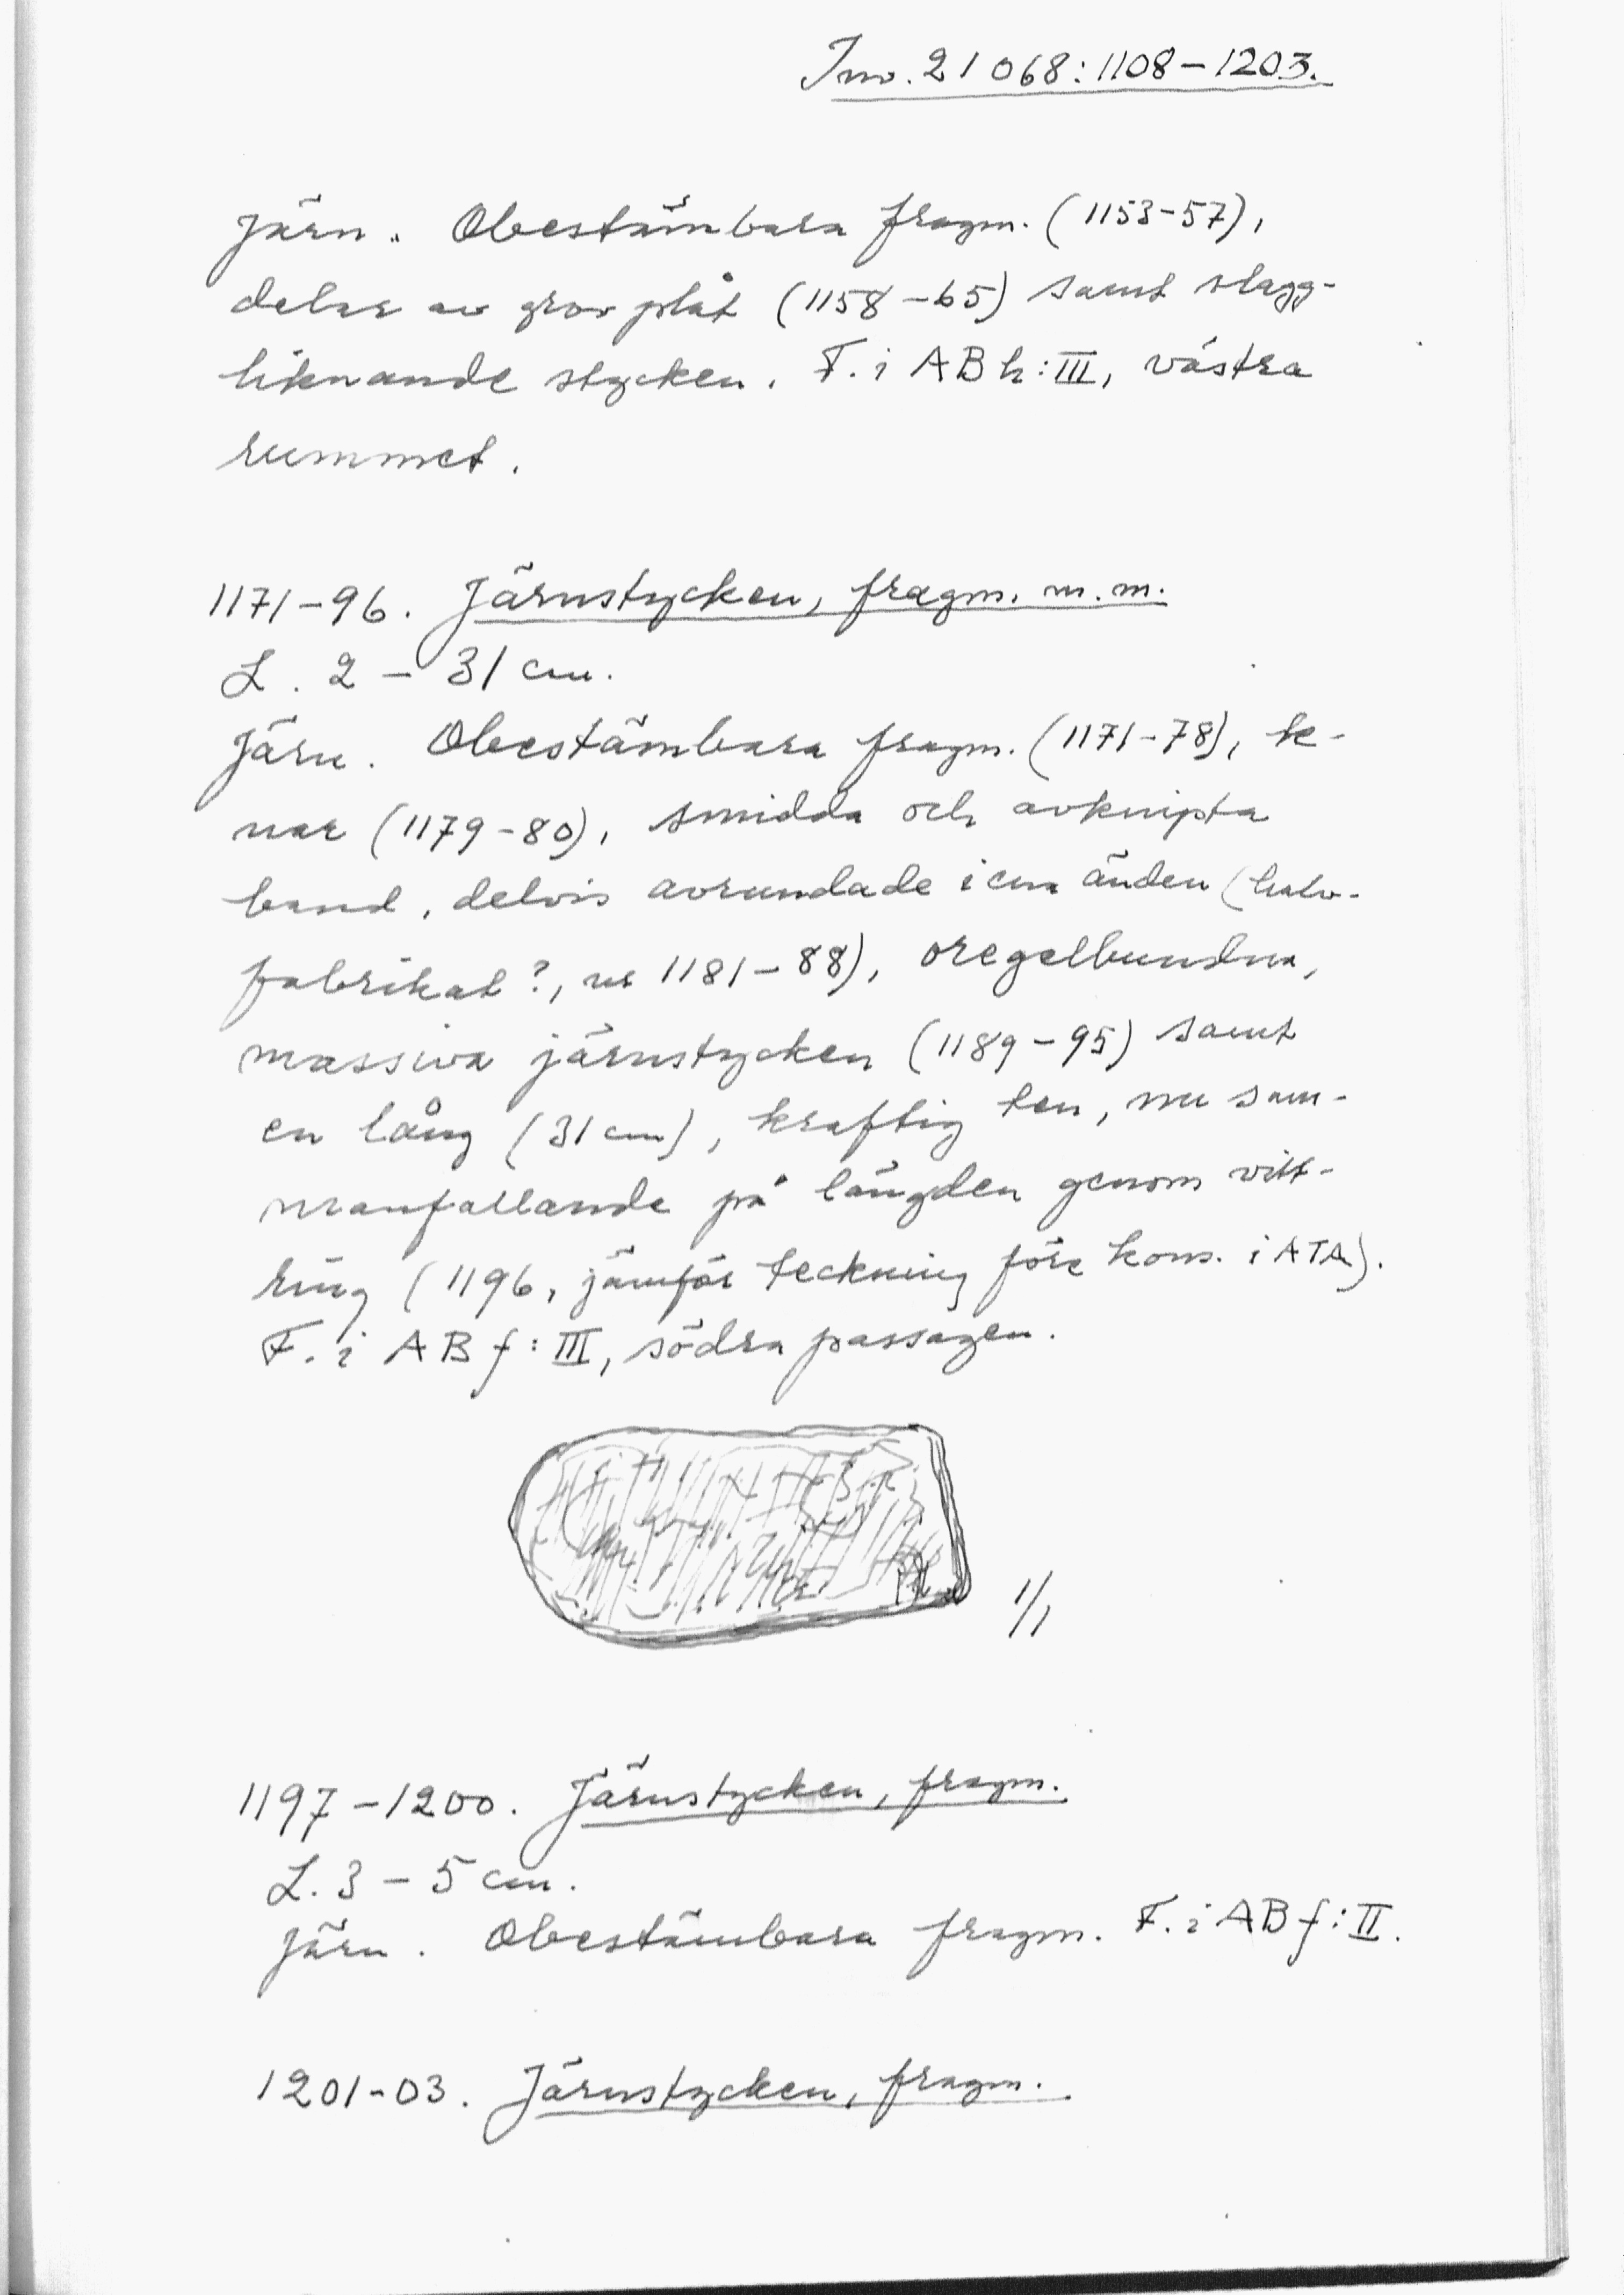 Inv. 21068:1108-1203.
Järn. Obestämbara fragm. (1153-57),
delar av grov plåt (1158-65) samt slagg-
liknande stycken. F. i ABh:III, västra
rummet.
1171-96. Järnstycken, fragm. m.m.
L. 2 - 31 cm.
Järn. Obestämbara fragm. (1171-78), te-
nar (1179-80), smidda och avknipta
band, delvis avrundade i ena änden (halv-
fabrikat?, nr 1181-88), oregelbundna,
massiva järnstycken (1189-95) samt
en lång (31 cm), kraftig ten, nu sam-
manfallande på längden genom vitt-
ring (1196, jämför teckning före kons. i ATA).
F. i ABf:III, södra passagen.
1/1
1197-1200. Järnstycken, fragm.
L. 3 - 5 cm.
Järn. Obestämbara fragm. F. i ABf:II.
1201-03. Järnstycken, fragm.